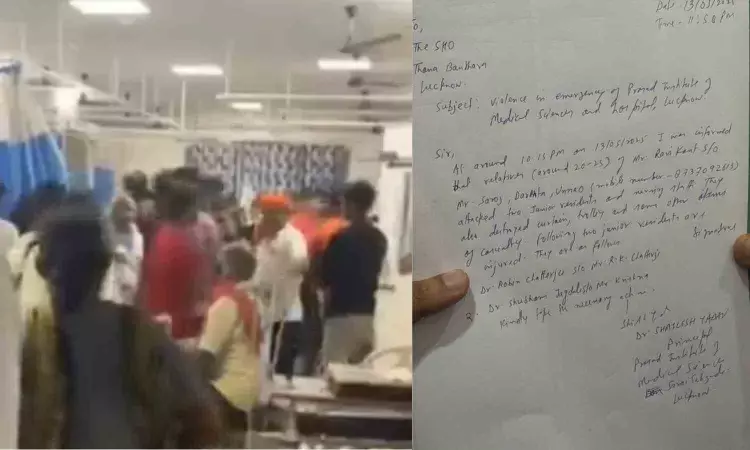 Date - 13/03/2025
Time - 11:50 PM
To,
The SHO
Thana Banthara
Lucknow.
Subject: Violence in emergency of Prasad Institute of
Medical Sciences and hospital, Lucknow.
Sir,
At around 10:15 PM on 13/03/2025 I was informed
that relatives (around 20-25) of Mr. Ravi Kant S/o
Mr. Saroj, Unnao (mobile number -
attacked two Junior residents and nursing staff. They
also destroyed curtain, trolley and some other items
of casualty following two junior residents are
injured. They are as follows
Signature
Dr. Rohan Chatterjee s/o Mr. R.K. Chatterji
2. Dr Shubham s/o Mr Krishna
Kindly take the necessary action.
Dr SHAILESH YADAV
Principal
Prasad Institute of
Medical Science
Lucknow